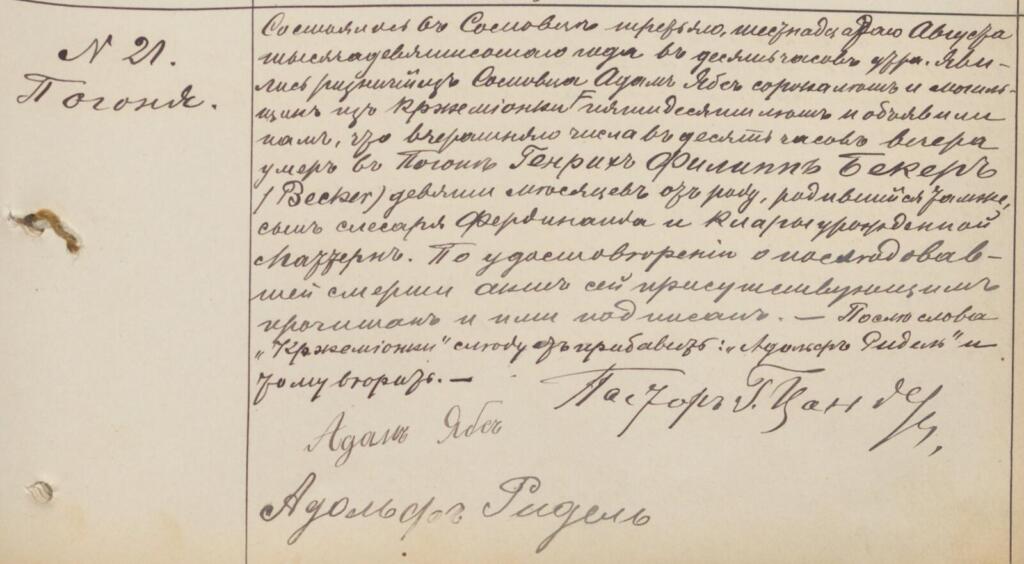 N 21.
Погоня.
Состоялось въ Сосновицахъ третьяго, шестнадцатаго Августа
тысяча девятисотаго года въ десять часовъ утра. Яви-
лись ризничій изъ Сосновца Адамъ Ябсъ сорока лѣтъ и могиль-
щикъ изъ Кржеміонки Г пятидесяти лѣтъ и объявили
намъ, что вчерашняго числа въ десять часовъ вечера
умеръ въ Погони Генрихъ Филиппъ Бекеръ
(Becker) девяти мѣсяцевъ отъ роду, родившійся тамже,
сынъ слесаря Фердинанда и Клары урожденной
Маттернъ. По удостовѣреніи о послѣдовав-
шей смерти актъ сей присутствующимъ
прочитанъ и ими подписанъ. — Послѣ слова
„Кржеміонки" слѣдуетъ прибавить: „Адольфъ Ридель" и
тому вѣрить. —
Пасторъ Г. Цандеръ.
Адамъ Ябсъ
Адольфъ Ридель